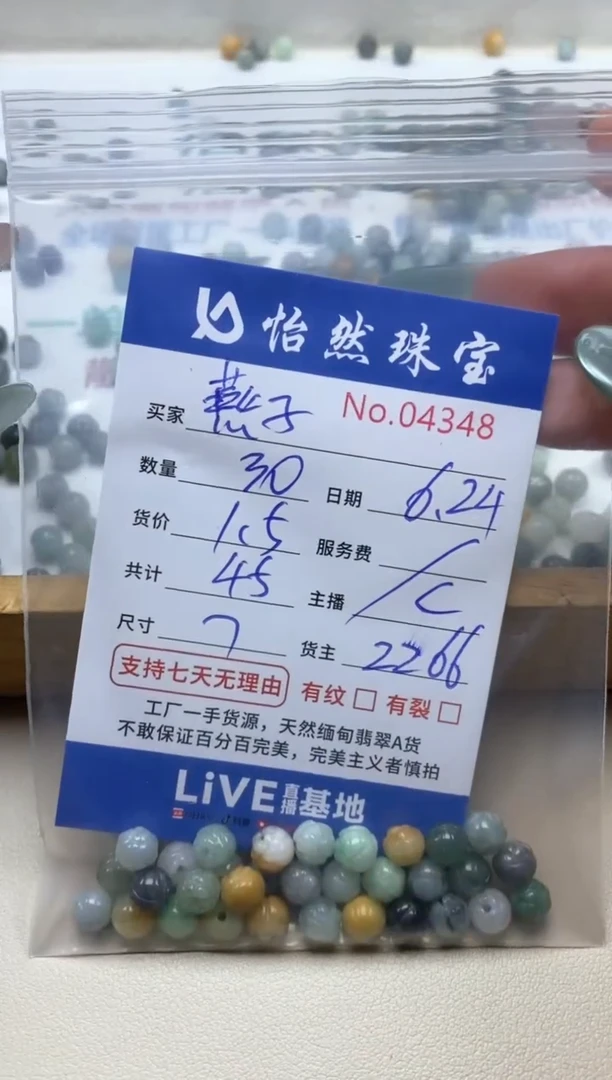 怡然珠宝
No.04348
买家 燕子
数量 30 日期 6.24
货价 1.5 服务费 /
共计 45 主播 C
尺寸 7 货主 2266
支持七天无理由 有纹 有裂
工厂一手货源，天然缅甸翡翠A货
不敢保证百分百完美，完美主义者慎拍
LiVE直播基地